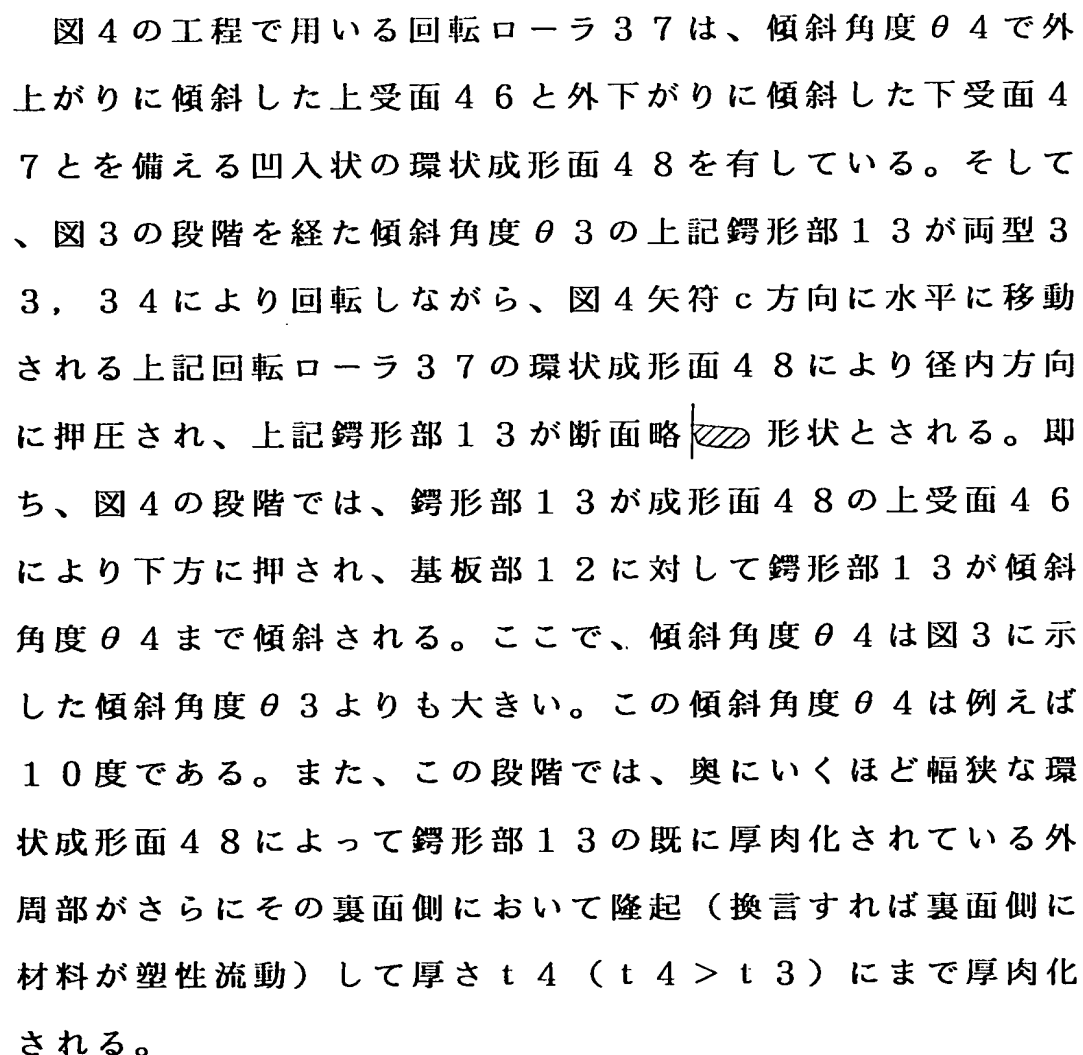 図４の工程で用いる回転ローラ３７は、傾斜角度θ４で外
上がりに傾斜した上受面４６と外下がりに傾斜した下受面４
７とを備える凹入状の環状成形面４８を有している。そして
、図３の段階を経た傾斜角度θ３の上記鍔形部１３が両型３
３，３４により回転しながら、図４矢符ｃ方向に水平に移動
される上記回転ローラ３７の環状成形面４８により径内方向
に押圧され、上記鍔形部１３が断面略 形状とされる。即
ち、図４の段階では、鍔形部１３が成形面４８の上受面４６
により下方に押され、基板部１２に対して鍔形部１３が傾斜
角度θ４まで傾斜される。ここで、傾斜角度θ４は図３に示
した傾斜角度θ３よりも大きい。この傾斜角度θ４は例えば
１０度である。また、この段階では、奥にいくほど幅狭な環
状成形面４８によって鍔形部１３の既に厚肉化されている外
周部がさらにその裏面側において隆起（換言すれば裏面側に
材料が塑性流動）して厚さｔ４（ｔ４＞ｔ３）にまで厚肉化
される。